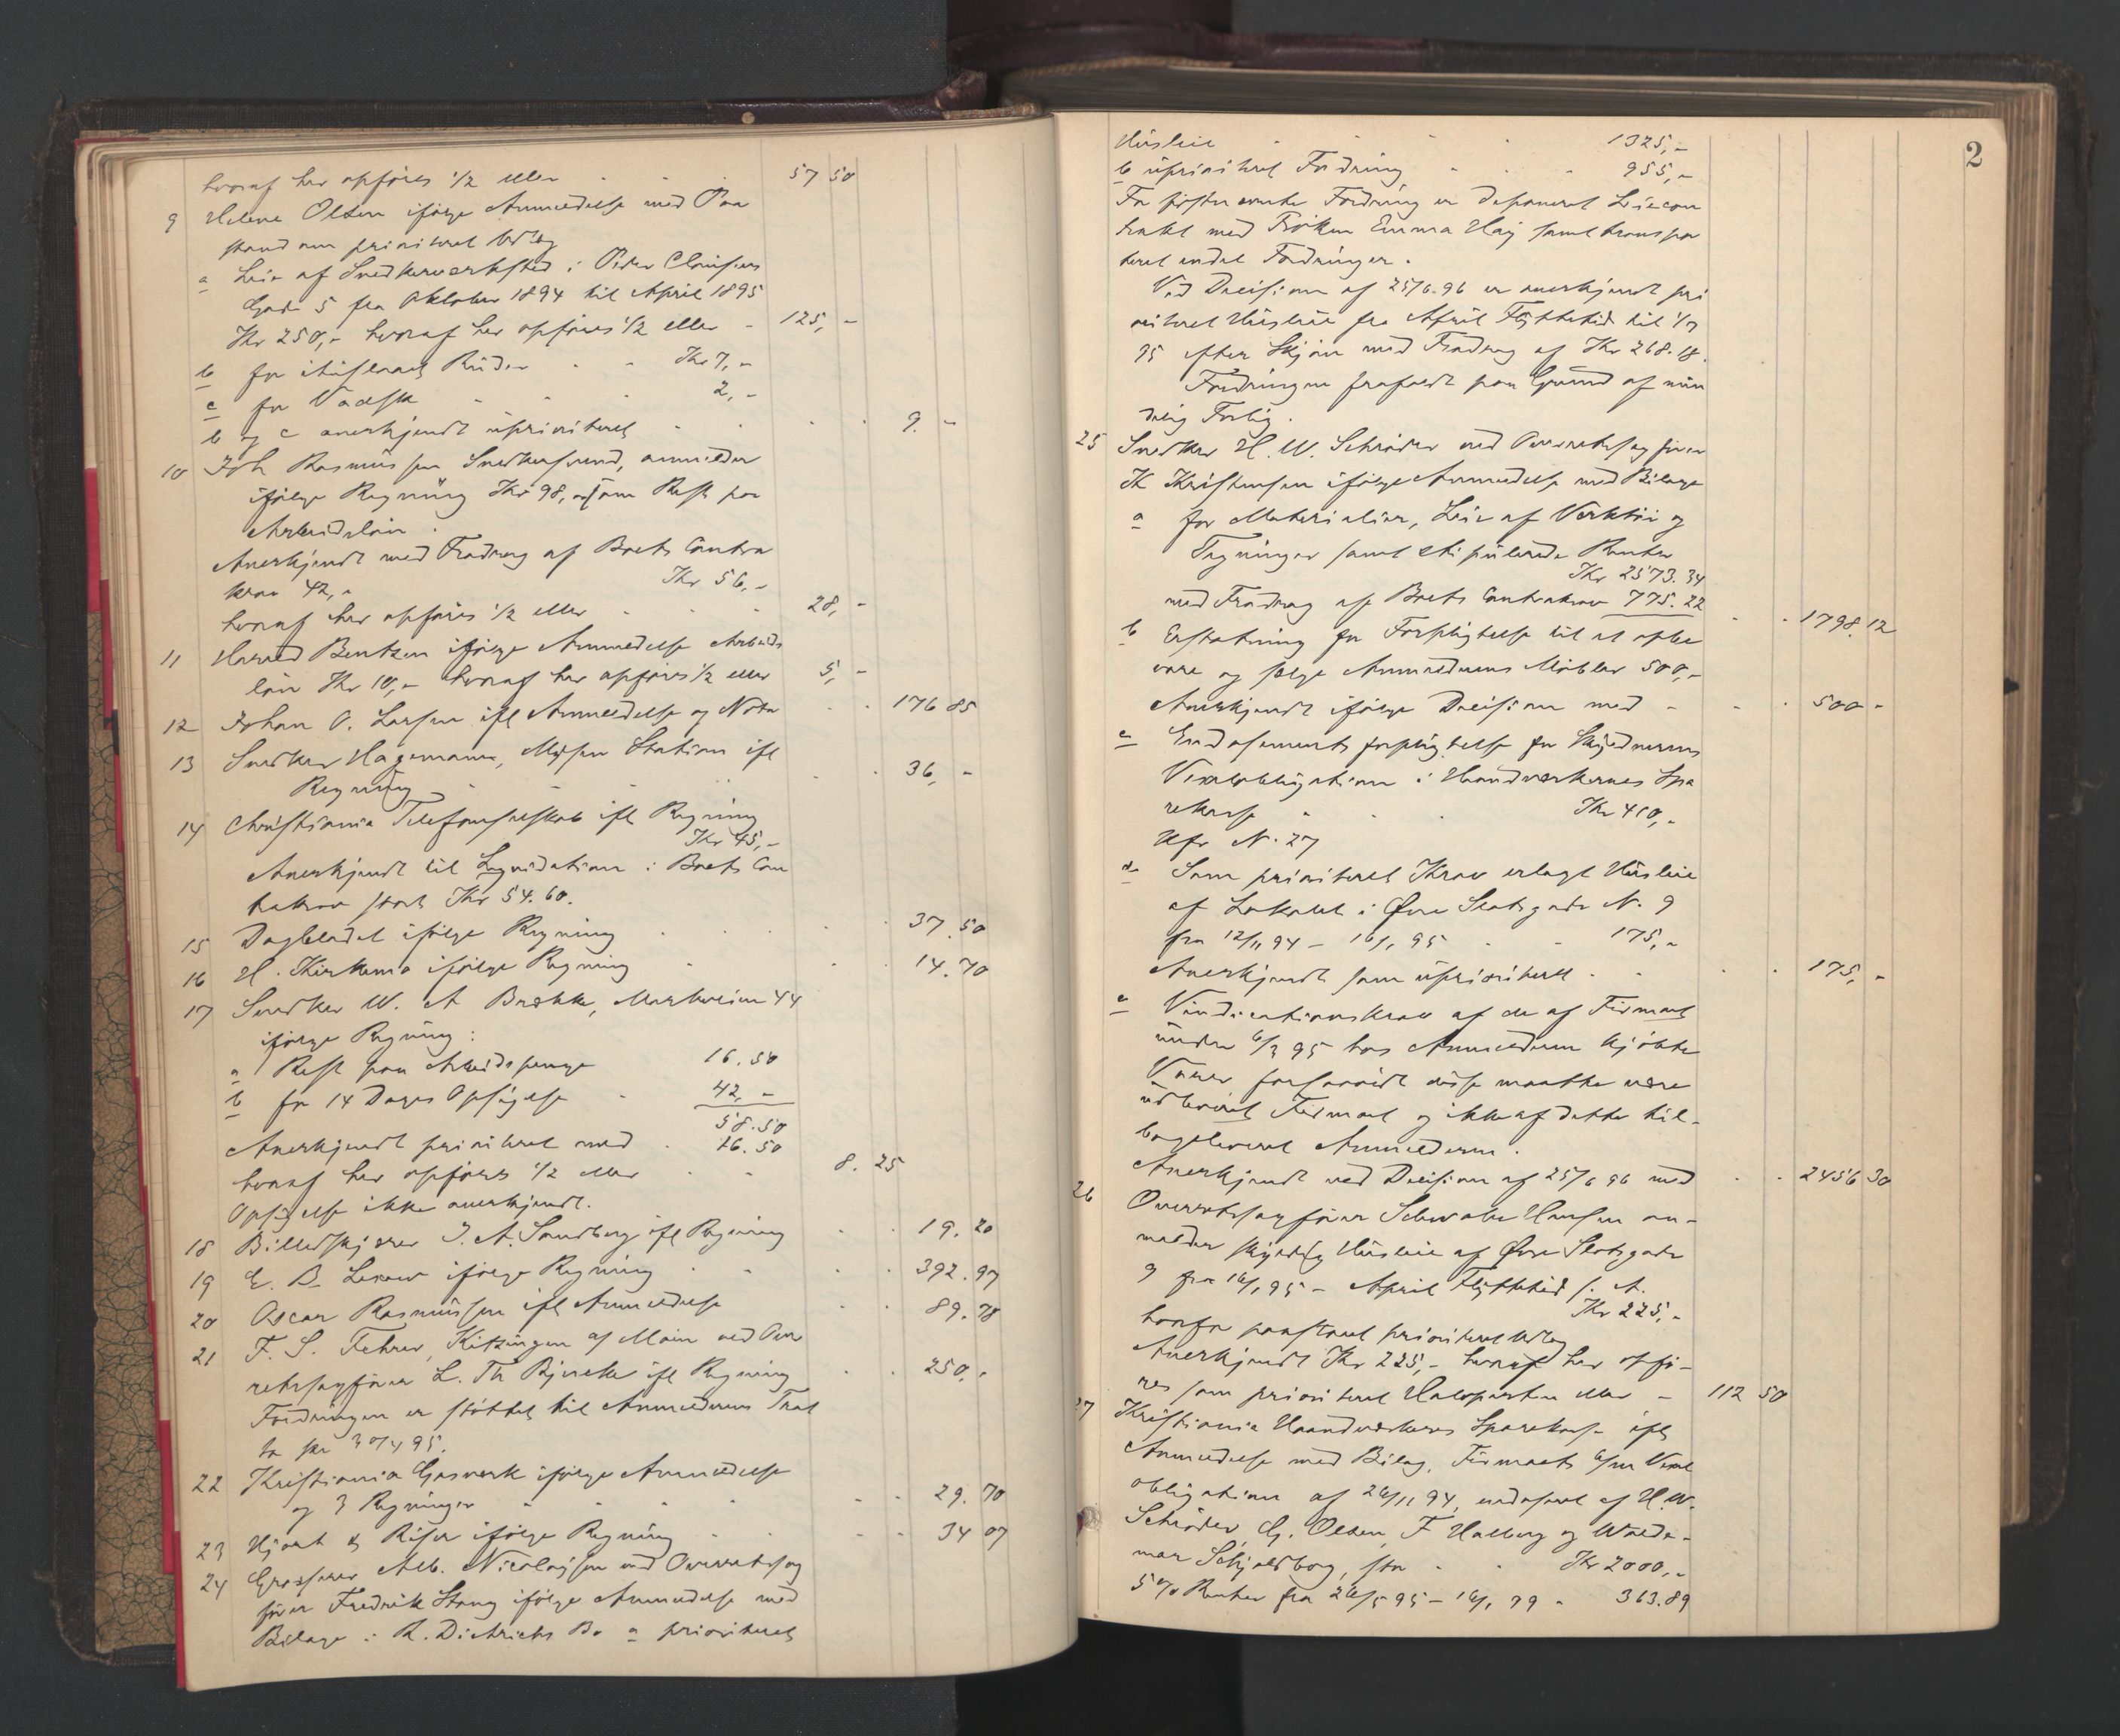 hvoraf her opføres 1/2 eller . . . 57 50
9 Helene Olsen ifølge Anmeldelse med Paa
stand om prioriteret Udlæg
a Leie af Snedkerverksted i Peder Clausens
Gade 5 fra Oktober 1894 til April 1895
Kr 250,- hvoraf her opføres 1/2 eller - 125,-
b for ituslaaede Ruder . - Kr 7,-
c for Vadsk - . . 2,-
b og c anerkjendt uprioriteret - . . . 9 -
10 Joh Rasmussen Snedkersvend, anmelder
ifølge Regning Kr 98,- som Rest paa
Arbeidsløn .
Anerkjendt med Fradrag af Boets Contra
krav 42,- Kr 56,-
hvoraf her opføres 1/2 eller . . . 28,-
11 Harald Bentzen ifølge Anmeldelse Arbeids
løn Kr 10,- hvoraf her opføres 1/2 eller 5,-
12 Johan O. Larsen ifl Anmeldelse og Nota . . 176 85
13 Snedker Hagemann, Mysen Station ifl
Regning - - . . . 36,-
14 Christiania Telefonselskab ifl Regning
Kr 45,-
Anerkjendt til Liquidation i Boets Con
trakrav stort Kr 54.60.
15 Dagbladet ifølge Regning . . . . . 37.50
16 H. Kirkemo ifølge Regning . . . 14.70
17 Snedker W. A Brække, Markveien 44
ifølge Regning:
a Rest paa Arbeidspenge 16.50
b for 14 Dages Opsigelse . 42,-
58.50
Anerkjendt prioriteret med . 16.50
hvoraf her opføres 1/2 eller . . 8.25
Opsigelse ikke anerkjendt.
18 Billedskjærer J. A. Sandberg ifl Regning . . 19.20
19 E. B. ifølge Regning . . . . 392.97
20 Oscar Rasmussen ifl Anmeldelse . . 89.78
21 F. S. Fehrer, Kitzingen a/ Main ved Over
retssagfører L. Th Bjerke ifl Regning . . 250,-
Fordringen er støttet til Anmelderens Trat
ta pr 30/4 95.
22 Kristiania Gasverk ifølge Anmeldelse
og 3 Regninger - - . . . - 29.70
23 Hjort & Riser ifølge Regning . . . - 34 07
24 Grosserer Alb. Nicolaysen ved Overretssag
fører Fredrik Stang ifølge Anmeldelse med
Bilage i R. Dietrichs Bo a prioriteret
2
Husleie . . . . 1325,-
b uprioriteret Fordring . . . 955,-
For sidstnævnte Fordring er deponeret Leiecon
trakt med Frøken Emma Høy samt transpor
teret endel Fordringer.
Ved Decision af 25/6.96 er anerkjendt pri
oriteret Husleie fra April Flyttetid til 1/7
95 efter Skjøn med Fradrag af Kr 268.18.
Fordringen frafaldt paa Grund af min
delig Forlig.
25 Snedker H. W. Schrøder ved Overretssagfører
K Kristensen ifølge Anmeldelse med Bilage
a for Materialier, Leie af Verktøi og
Tegninger samt stipulerede Renter
Kr 2573.34
med Fradrag af Boets Contrakrav 775.22 . . 1798.12
b Erstatning for Forpligtelse til at opbe
vare og sælge Anmelderens Møbler 500,-
Anerkjendt ifølge Decision med - . . 500 -
c Endosements forpligtelse for Skyldnerens
Vexelobligation i Haandværkernes Spa
rekasse . . . Kr 410,-
Kfr N. 27
d Som prioriteret Krav erlagt Husleie
af Lokalet i Øvre Slotsgade N. 9
fra 12/11 94 - 16/1 95 . - 175,-
Anerkjendt som uprioriteret . . . . 175,-
e Vindicationskrav af de af Firmaet
under 6/3 95 hos Anmelderen kjøbte
Varer forsaavidt disse maatte være
udleveret Firmaet og ikke af dette til-
bageleveret Anmelderen.
Anerkjendt ved Decision af 25/6 96 med . . 2456 30
26 Overretssagfører Schwabe Hansen an-
melder skyldig Husleie af Øvre Slotsgade
9 fra 16/1 95 - April Flyttetid s. A.
Kr 225,-
hvorfor paastaaet prioriteret Udlæg
Anerkjendt Kr 225,- hvoraf her opfø-
res som prioriteret Halvparten eller - 112 50
27 Kristiania Haandværkeres Sparekasse ifl
Anmeldelse med Bilag, Firmaets 6/m Vexel
obligation af 26/11 94, endosseret af H.W.
Schrøder, G. Olsen, F Halberg og Walde-
mar Schjoldborg, stor - . Kr 2000,-
5% Renter fra 26/5 95 - 16/1 99 - 363.89